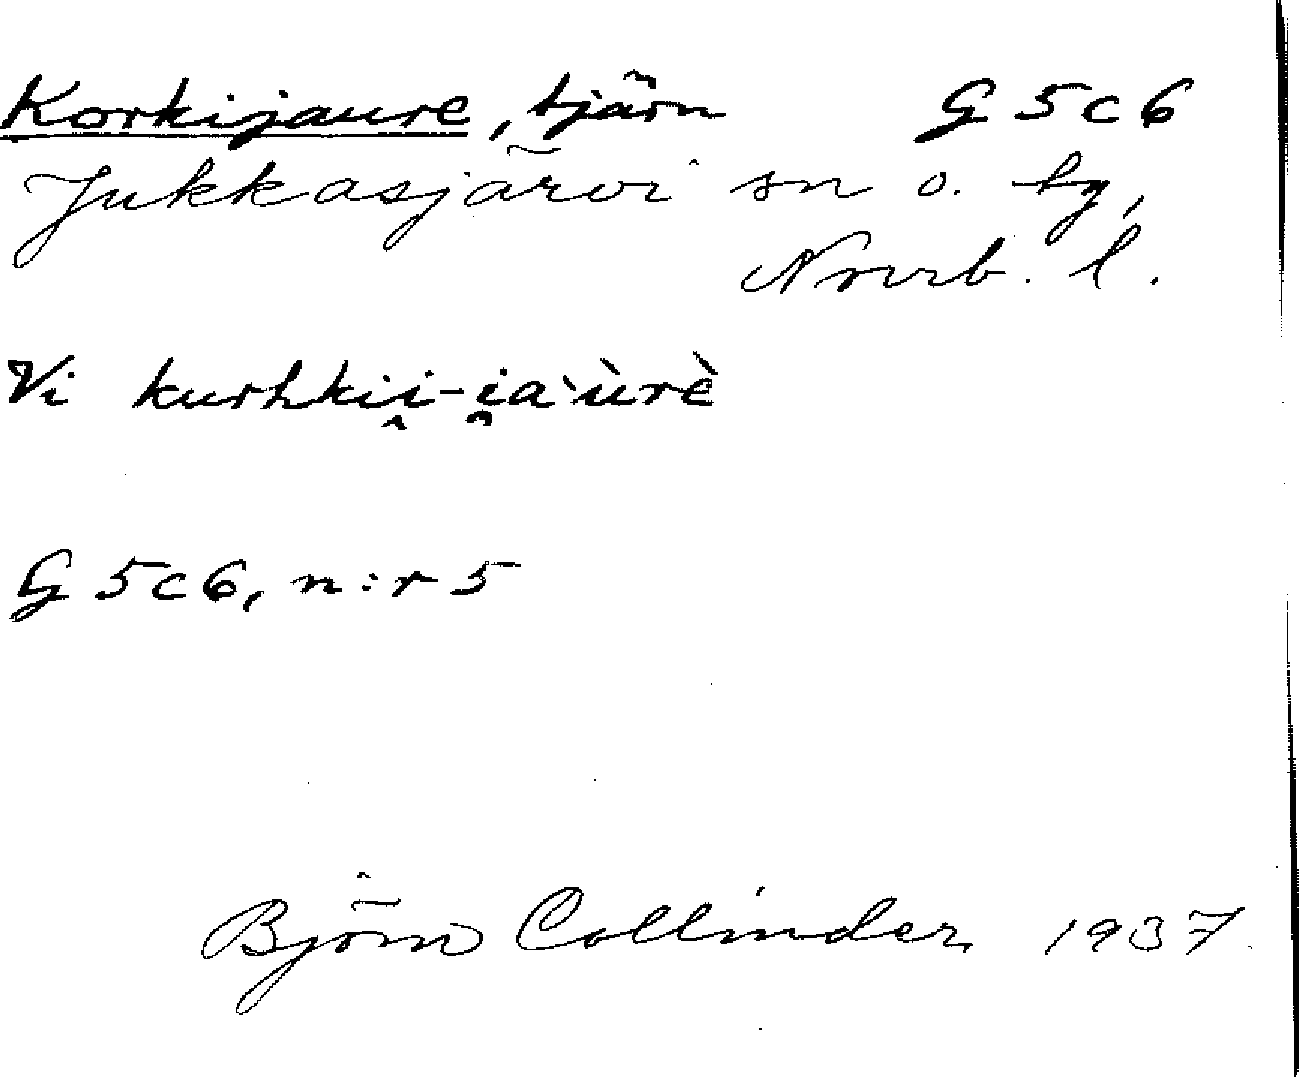 Korkijaure, tjärn G 5 c 6
Jukkasjärvi sn o. tg,
Norrb. l.
Vi kurhkii̭-i̯a`ùrè
G 5 c 6, n:r 5
Björn Collinder 1937